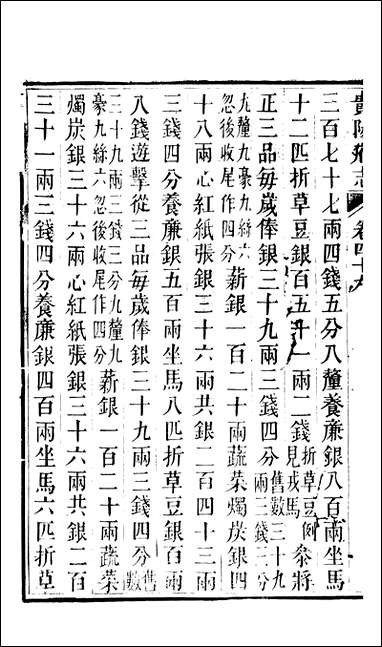 貴陽府志 卷四十九
三百七十七兩四錢五分八釐養廉銀八百兩坐馬
十二匹折草豆銀百五十一兩二錢折草豆例見戎馬參將
正三品每歲俸銀三十九兩三錢四分舊數三十九兩三錢三分
九釐九豪九絲六忽後收尾作四分薪銀一百二十兩蔬菜燭炭銀四
十八兩心紅紙張銀三十六兩共銀二百四十三兩
三錢四分養廉銀五百兩坐馬八匹折草豆銀百兩
八錢遊擊從三品每歲俸銀三十九兩三錢四分舊數
三十九兩三錢三分九釐九豪九絲六忽後收尾作四分薪銀一百二十兩蔬菜
燭炭銀三十六兩心紅紙張銀三十六兩共銀二百
三十一兩三錢四分養廉銀四百兩坐馬六匹折草